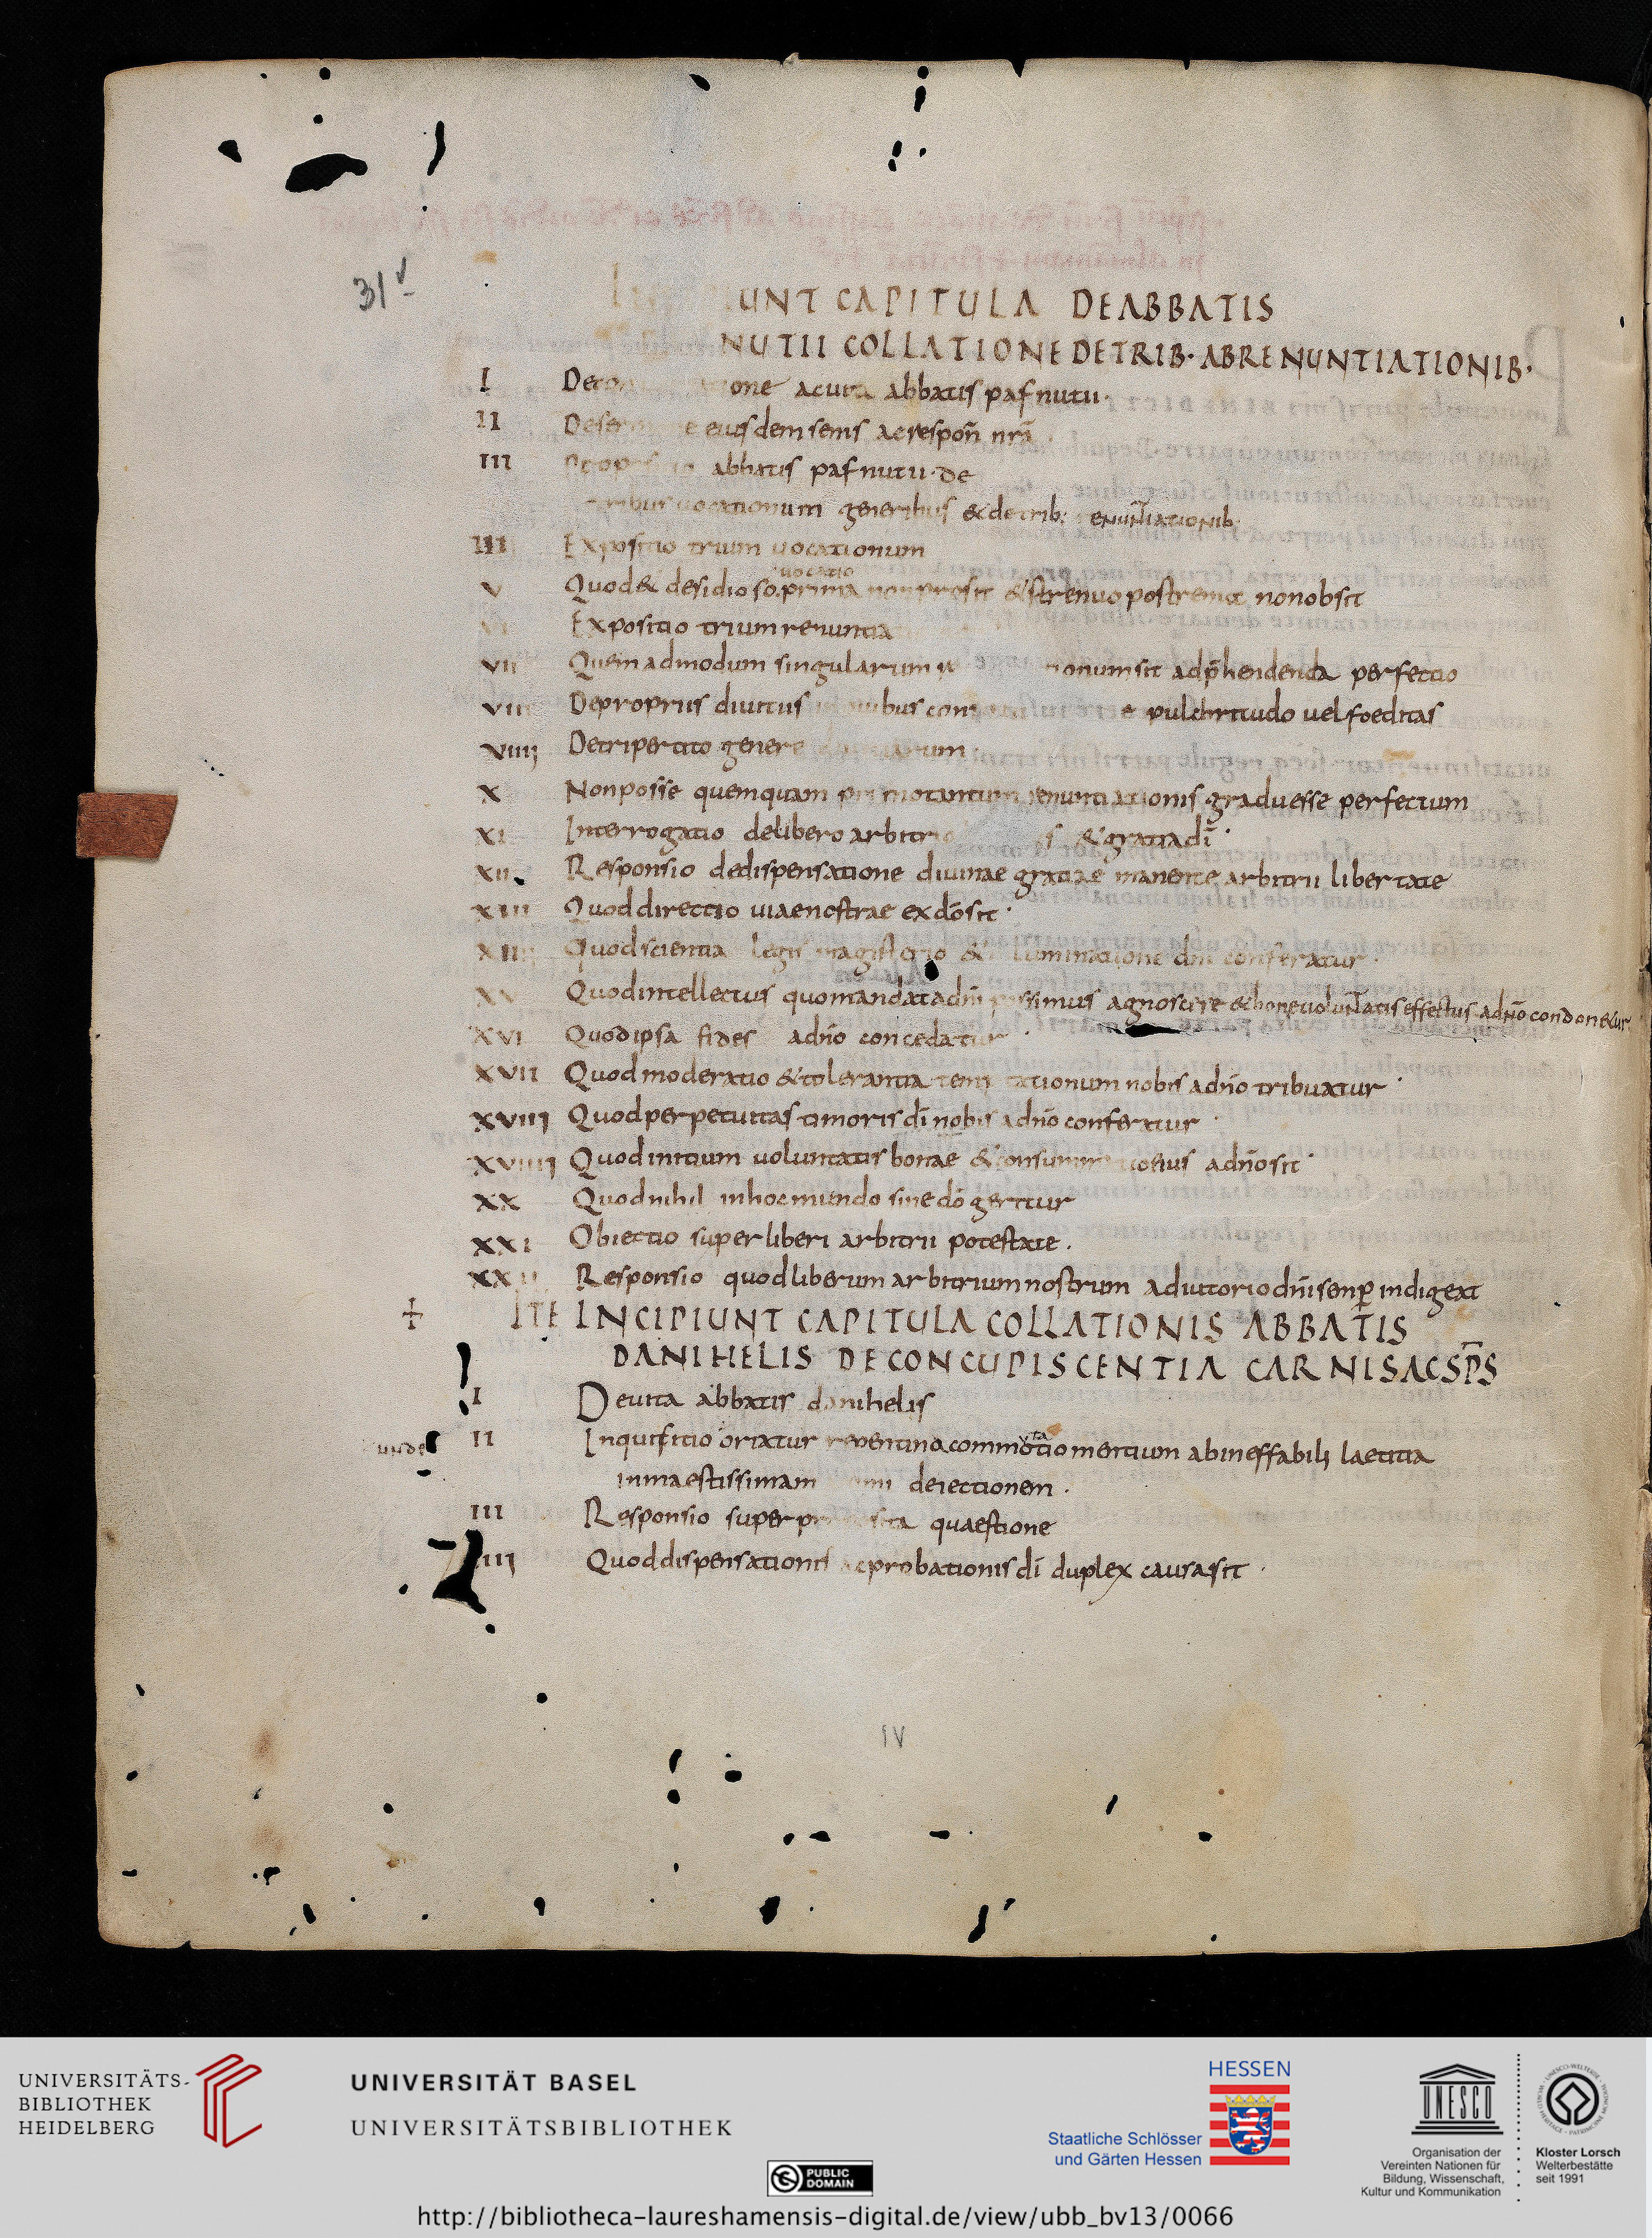 31v
UNT CAPITULA DE ABBATIS
NUTII COLLATIONE DE TRIB· ABRENUNTIATIONIB·
I De one ac uita abbatis pafnutii·
II De eiusdem senis ac respoñ nrã
III abbatis pafnutii· de
tribus uocationum generibus & de trib: renuntiationib:
IIII Expositio trium uocationum
uocatio
V Quod & desidioso prima non prosit & strenuo postrema non obsit
Expositio trium renuntia
VII Quemadmodum singularum onum sit adp̄hendenda perfectio
VIII De propriis diuitiis in quibus con pulchritudo uel foeditas
VIIII De tripertito genere
X Non posse quemquam primo tantum renuntiationis gradu esse perfectum
XI Interrogatio de libero arbitrio & gratia dī·
XII Responsio de dispensatione diuinae gratiae manente arbitrii libertate
XIII Quod directio uiae nostrae ex dō sit·
XIIII Quod scientia legis magisterio & luminatione dnī conferatur·
XV Quod intellectus quo mandata dnī possimus agnoscere & bone uoluntatis effectus a dn̄o condonetur
XVI Quod ipsa fides a dn̄o concedatur·
XVII Quod moderatio & tolerantia temptationum nobis a dn̄o tribuatur·
XVIII Quod perpetuitas timoris dī nobis a dn̄o conferatur·
XVIIII Quod initium uoluntatis bonae & consummatio eius a dn̄o sit·
XX Quod nihil in hoc mundo sine dō geritur
XXI Obiectio super liberi arbitrii potestate·
XXII Responsio quod liberum arbitrium nostrum adiutorio dnī semp̄ indigeat
+ ITE INCIPIUNT CAPITULA COLLATIONIS ABBATIS
DANIHELIS DE CONCUPISCENTIA CARNIS AC SP̄S
I De uita abbatis danihelis
unde II Inquisitio oriatur repentina commotio mentium ab ineffabili laetitia
in maestissimam deiectionem·
III Responsio super quaestione
IIII Quod dispensationis ac probationis dī duplex causa sit·
IV
UNIVERSITÄTS-
BIBLIOTHEK
HEIDELBERG
UNIVERSITÄT BASEL
UNIVERSITÄTSBIBLIOTHEK
PUBLIC
DOMAIN
HESSEN
Staatliche Schlösser
und Gärten Hessen
UNESCO
Organisation der
Vereinten Nationen für
Bildung, Wissenschaft,
Kultur und Kommunikation
Kloster Lorsch
Welterbestätte
seit 1991
http://bibliotheca-laureshamensis-digital.de/view/ubb_bv13/0066